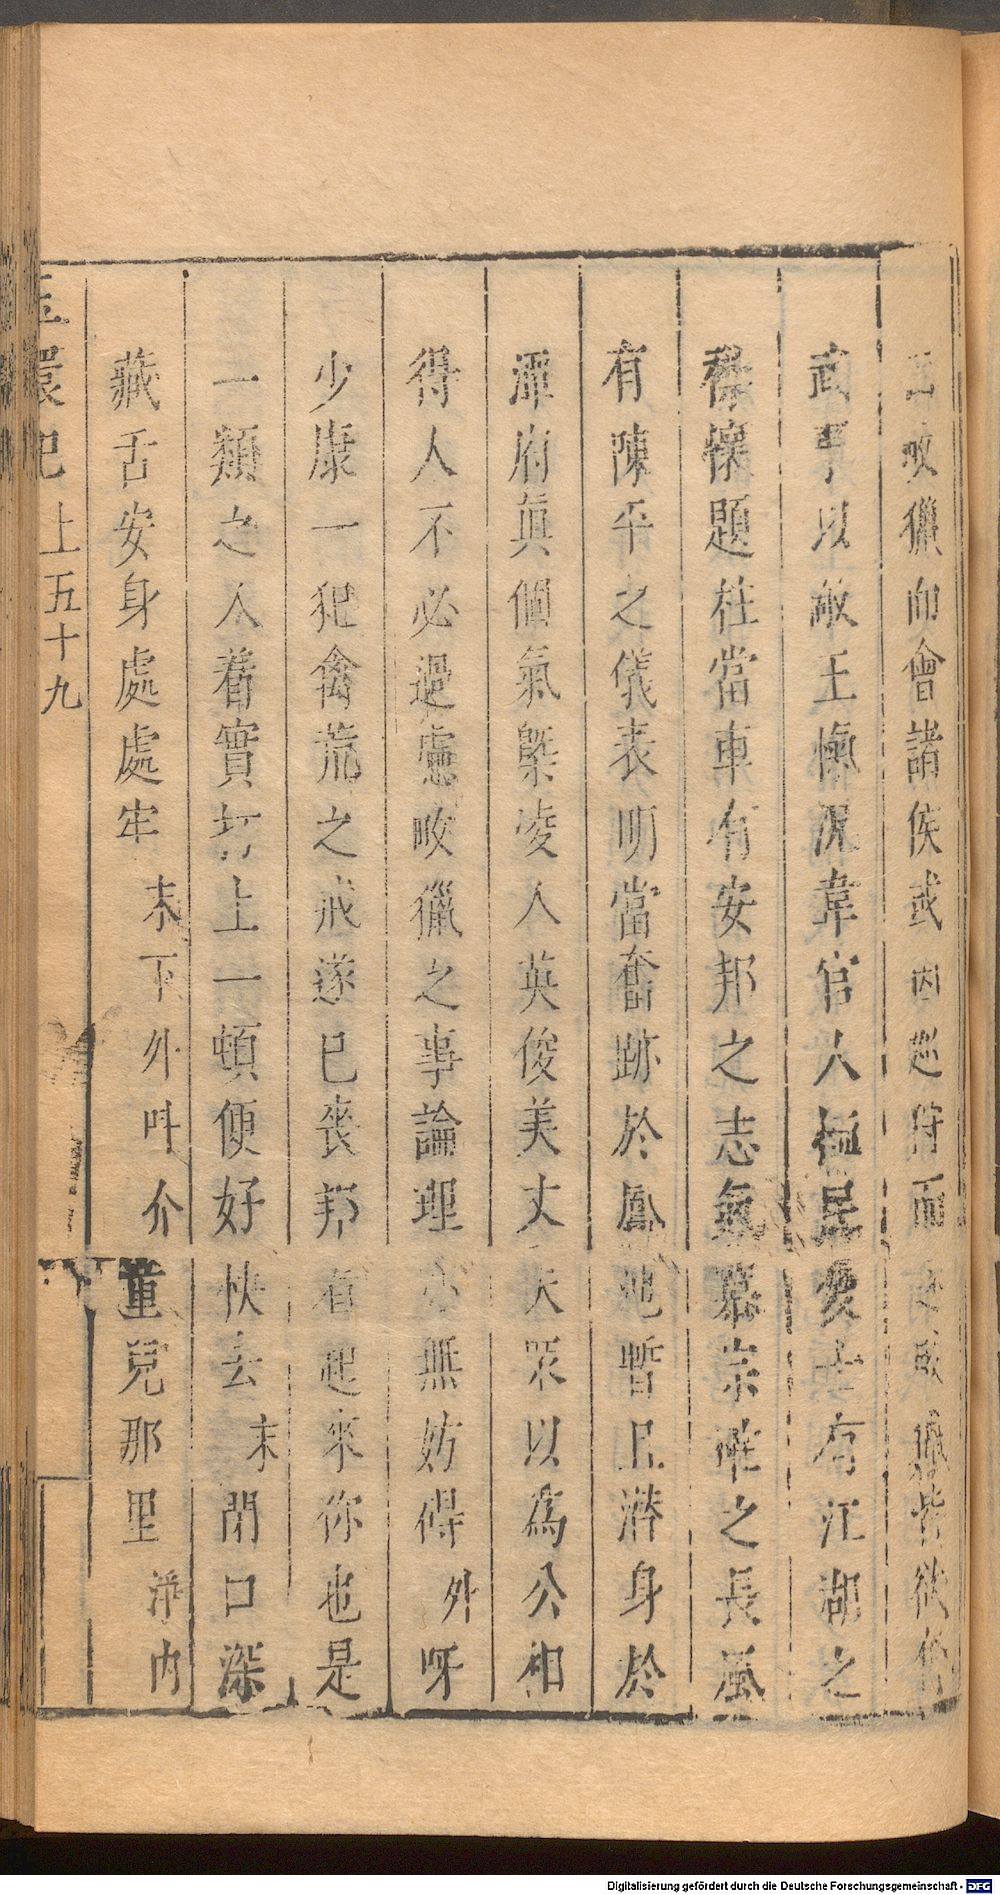 畋獵而會諸侯或因巡狩而 獵皆欲修
武事以敵王愾況韋官人極是愛士有江湖之
襟懷題柱當車有安邦之志氣慕宗確之長風
有陳平之儀表明當奮跡於鳳池暫且潛身於
潭府眞個氣槩凌人英俊美丈夫眾以為公相
得人不必過慮畋獵之事論理亦無妨碍外呀
少康一犯禽荒之戒遂已喪邦看起來你也是
一類之人着實打上一頓便好快去末閉口深
藏舌安身處處牢末下外叫介童兒那里淨內
玉環記上五十九
Digitalisierung gefördert durch die Deutsche Forschungsgemeinschaft - DFG